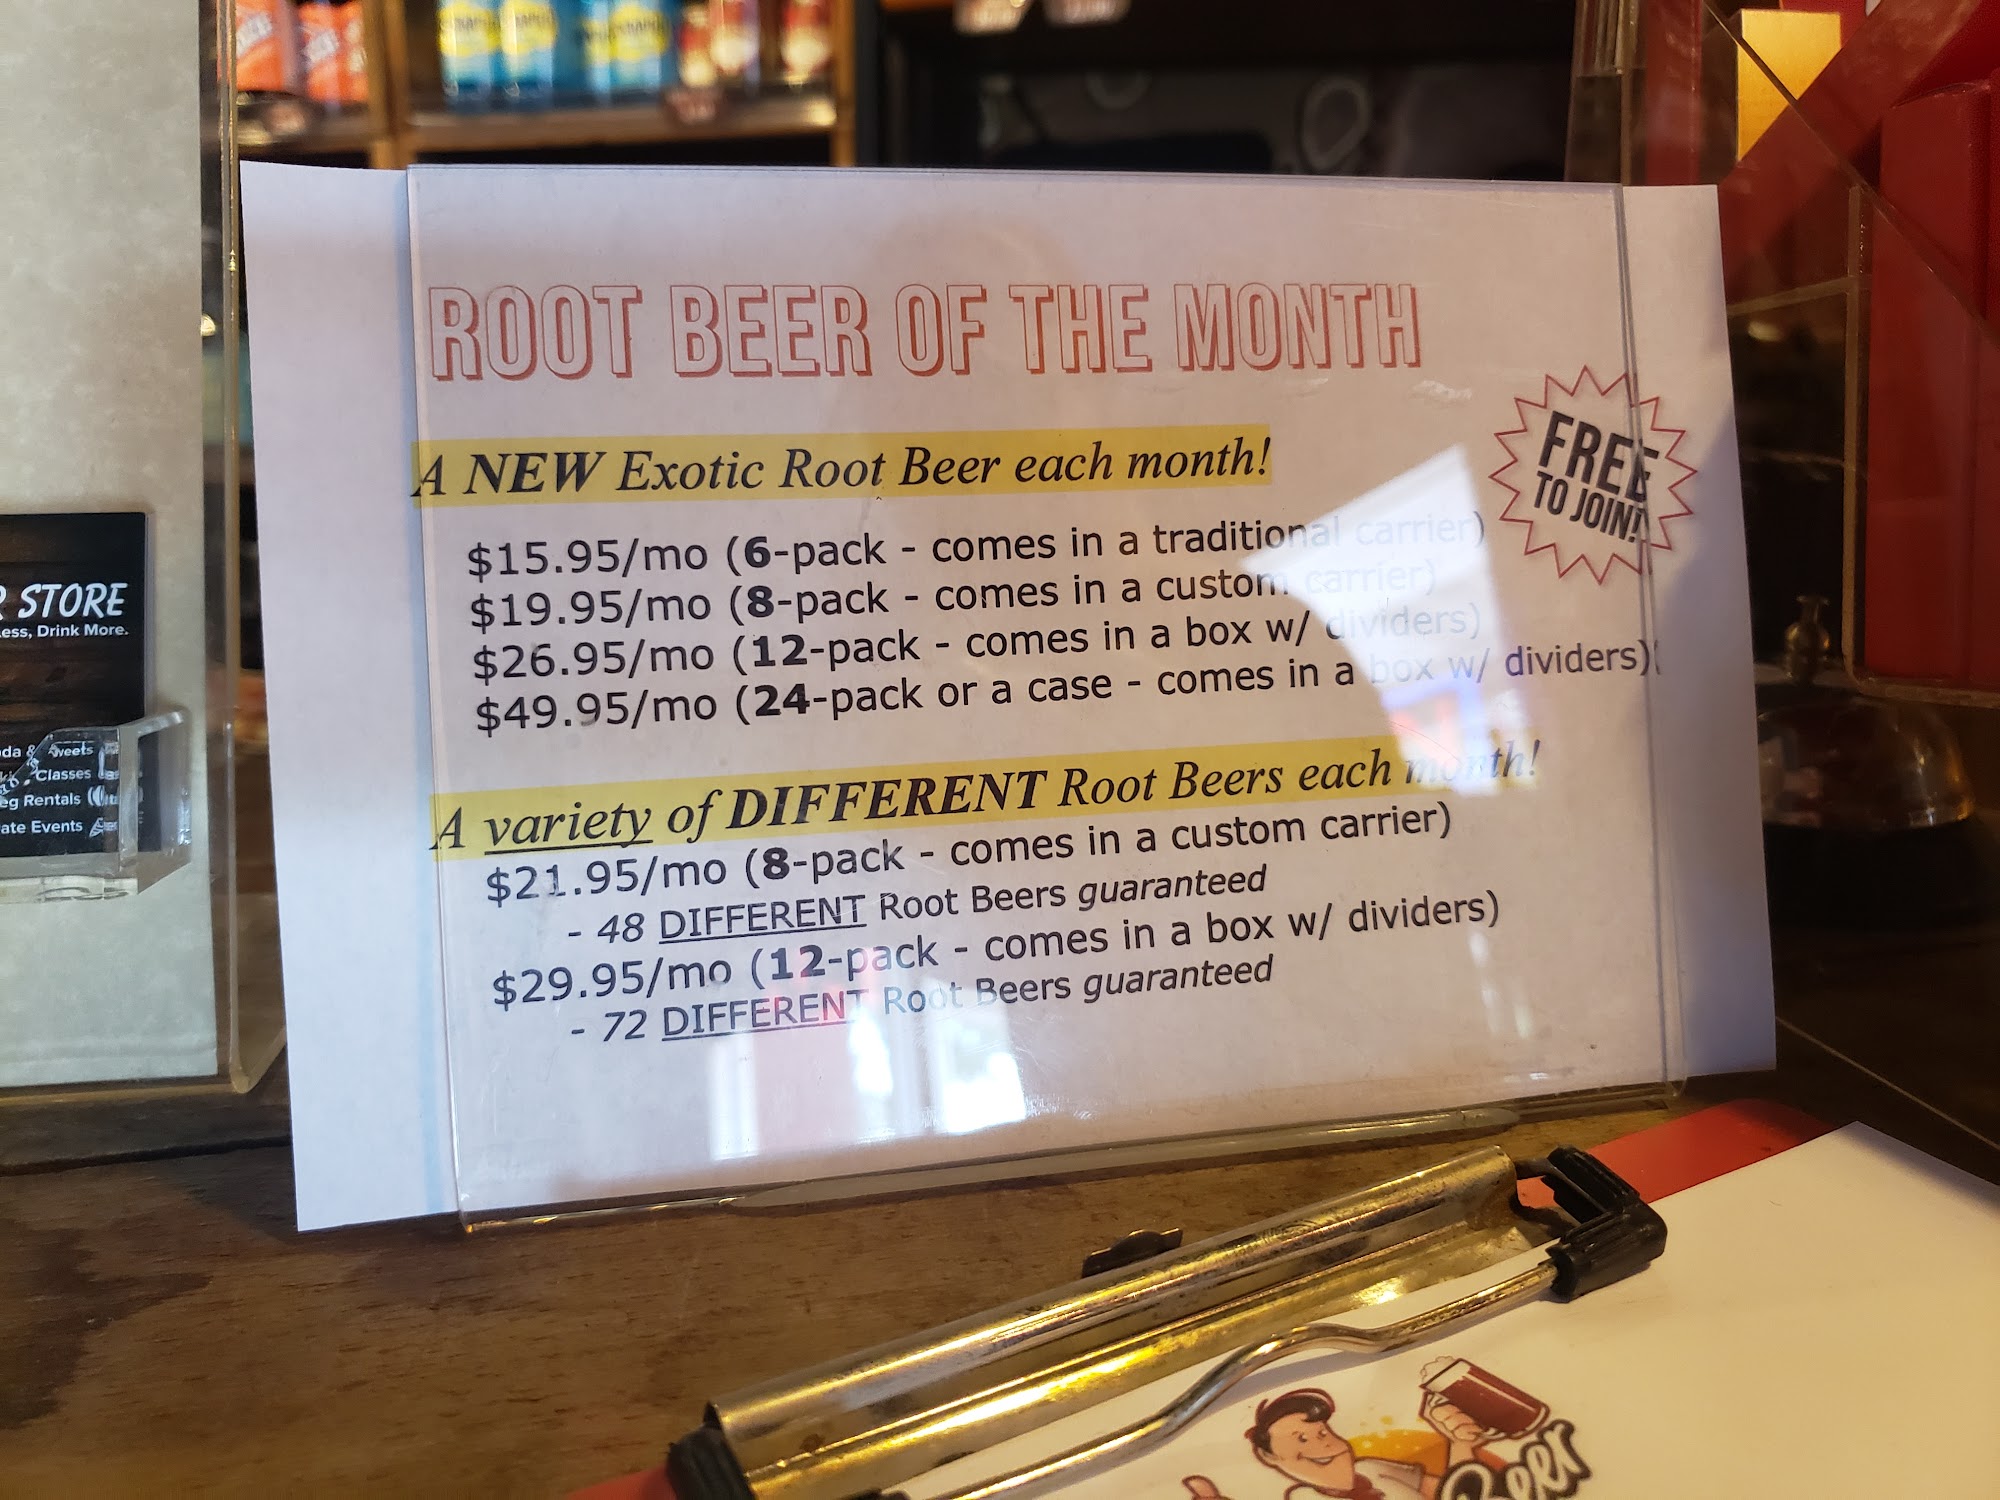 ROOT BEER OF THE MONTH
FREE
TO JOIN!
A NEW Exotic Root Beer each month!
$15.95/mo (6-pack - comes in a traditional carrier)
$19.95/mo (8-pack - comes in a custom carrier)
$26.95/mo (12-pack - comes in a box w/ dividers)
$49.95/mo (24-pack or a case - comes in a box w/ dividers)
A variety of DIFFERENT Root Beers each month!
$21.95/mo (8-pack - comes in a custom carrier)
- 48 DIFFERENT Root Beers guaranteed
$29.95/mo (12-pack - comes in a box w/ dividers)
- 72 DIFFERENT Root Beers guaranteed
STORE
Drink More.
& Sweets
Classes
Rentals
Events
Beer